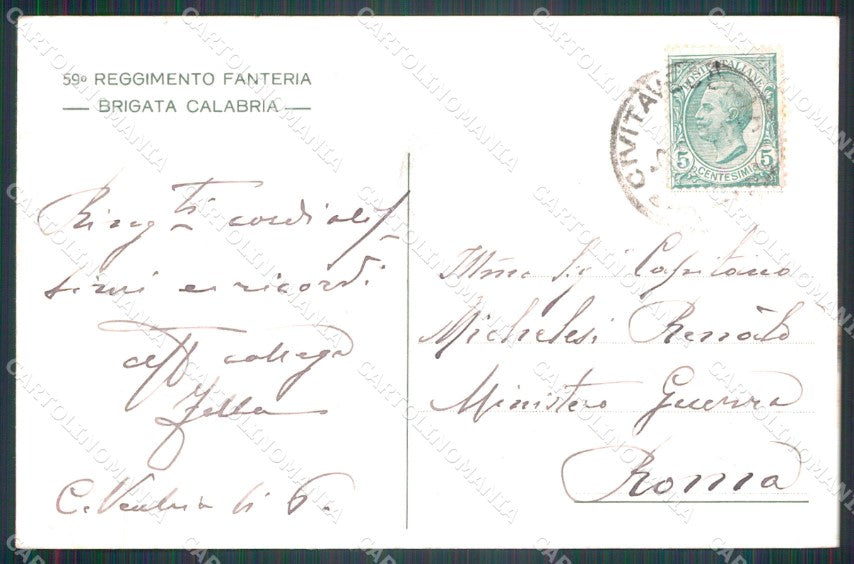 59º REGGIMENTO FANTERIA
BRIGATA CALABRIA
Ringti cordialis
simi e ricordi
aff collega
Zolla
C. Vecchia li 6.
POSTE ITALIANE
5 CENTESIMI 5
CIVITAVECCHIA
Illmo Sig Capitano
Michelesi Renato
Ministero Guerra
Roma
CARTOLINOMANIA